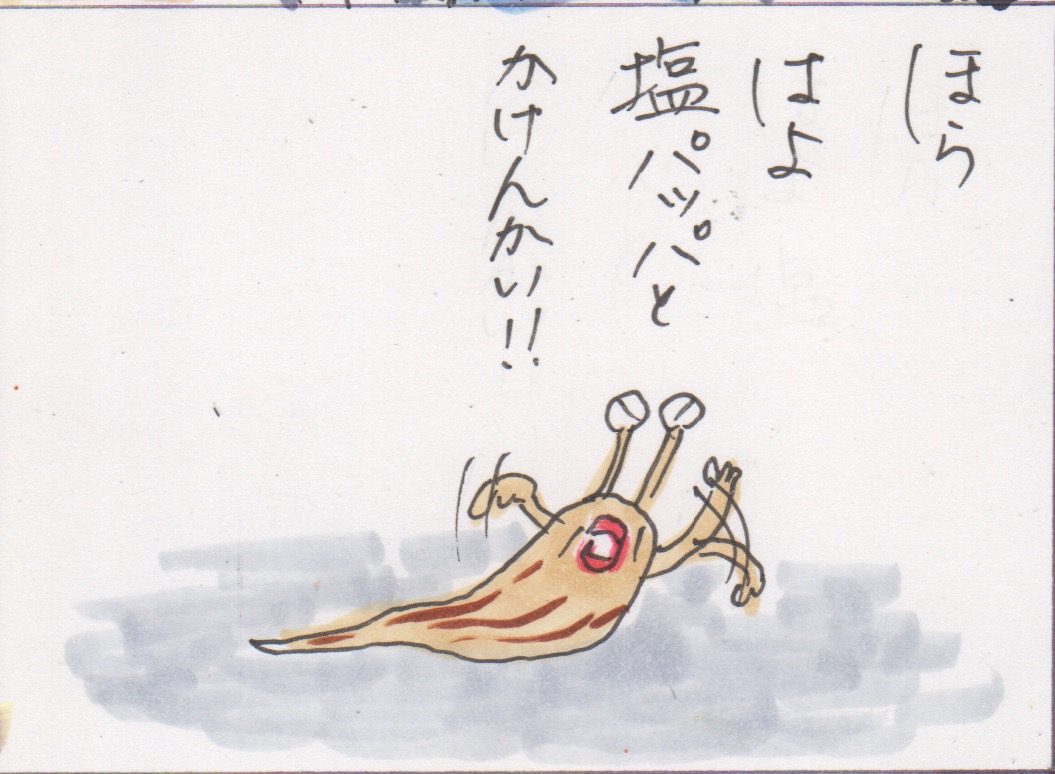 ほら
はよ
塩パッパと
かけんかい!!